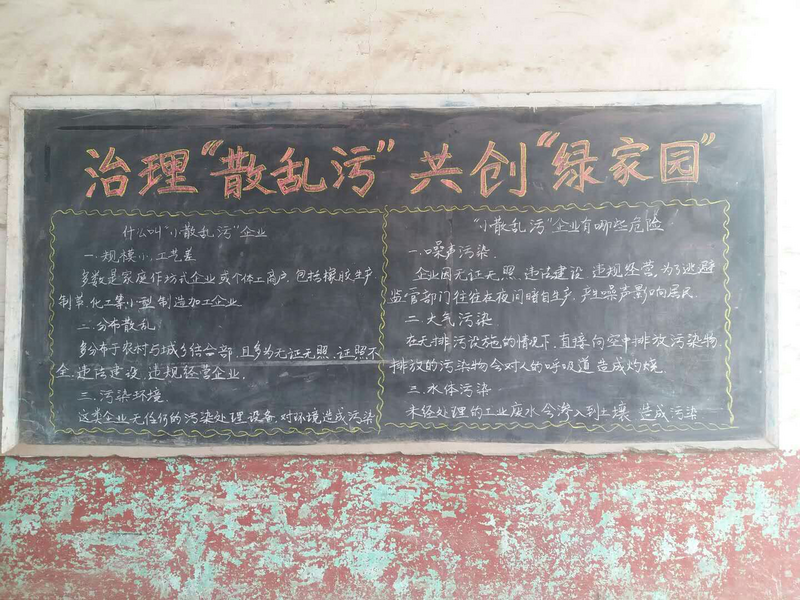 治理“散乱污”共创“绿家园”
什么叫“小散乱污”企业
一.规模小,工艺差
多数是家庭作坊式企业或个体工商户,包括橡胶生产
制革.化工集小型制造加工企业
二.分布散乱
多分布于农村与城乡结合部,且多为无证无照.证照不
全.违法建设.违规经营企业.
三.污染环境
这类企业无任何的污染处理设备.对环境造成污染
“小散乱污”企业有哪些危险
一.噪声污染.
企业因无证无照.违法建设.违规经营,为了逃避
监管部门往往在夜间暗自生产.产生噪声影响居民.
二.大气污染
在无排污设施的情况下,直接向空中排放污染物
排放的污染物会对人的呼吸道造成灼烧.
三.水体污染
未经处理的工业废水会渗入到土壤 造成污染